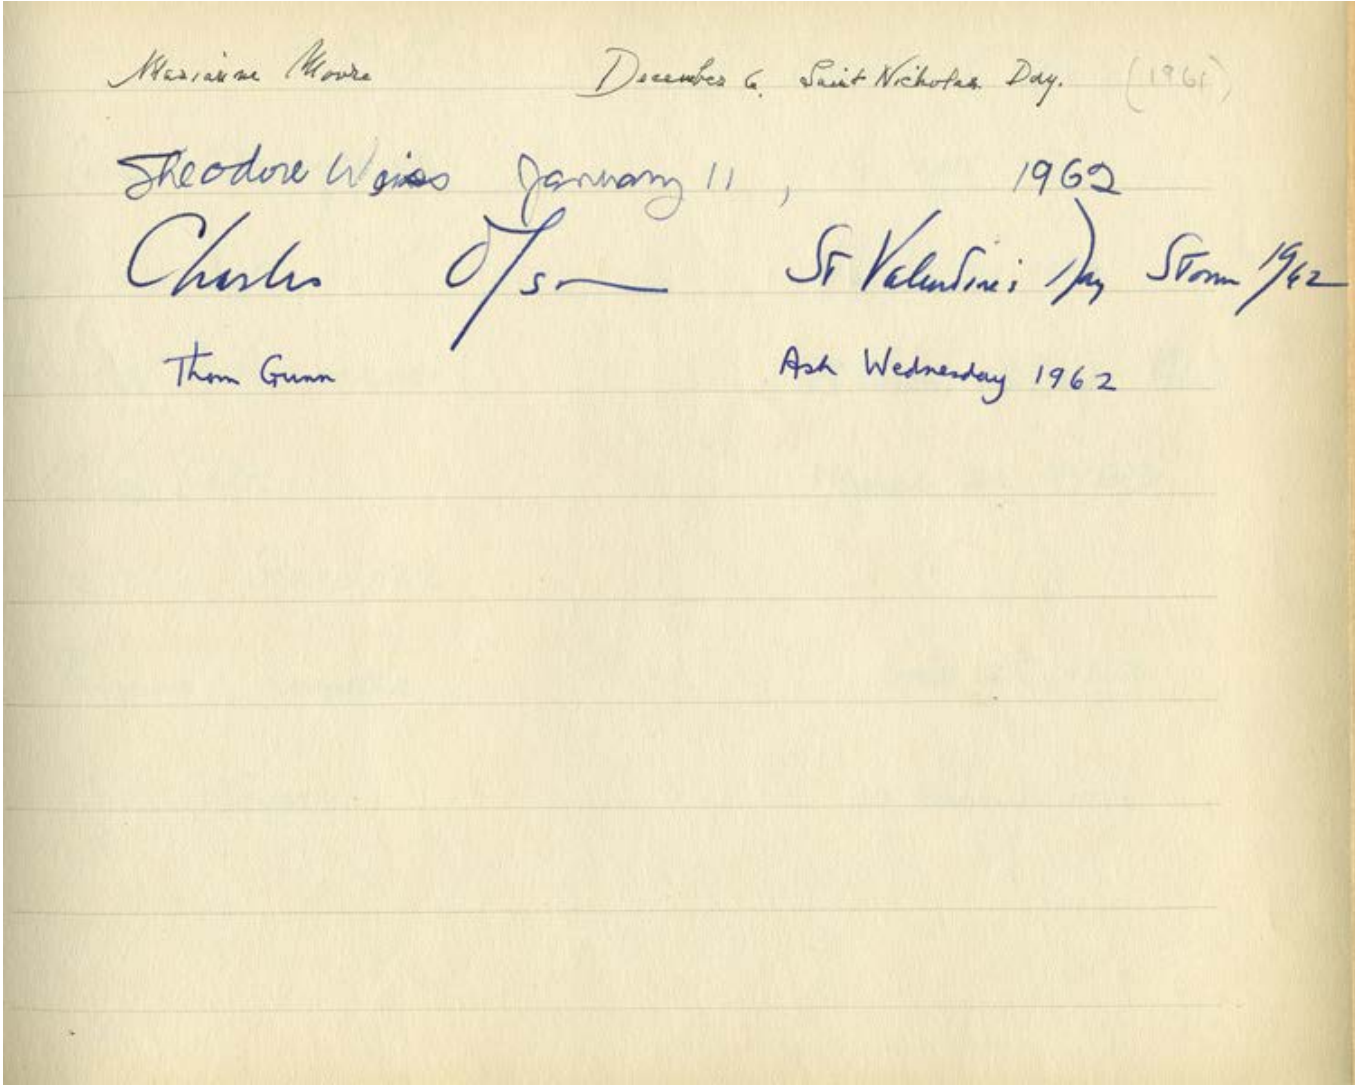 Marianne Moore December 6. Saint Nicholas Day. (1961)
Theodore Weiss January 11, 1962
Charles Olson St Valentine's Day Storm 1962
Thom Gunn Ash Wednesday 1962